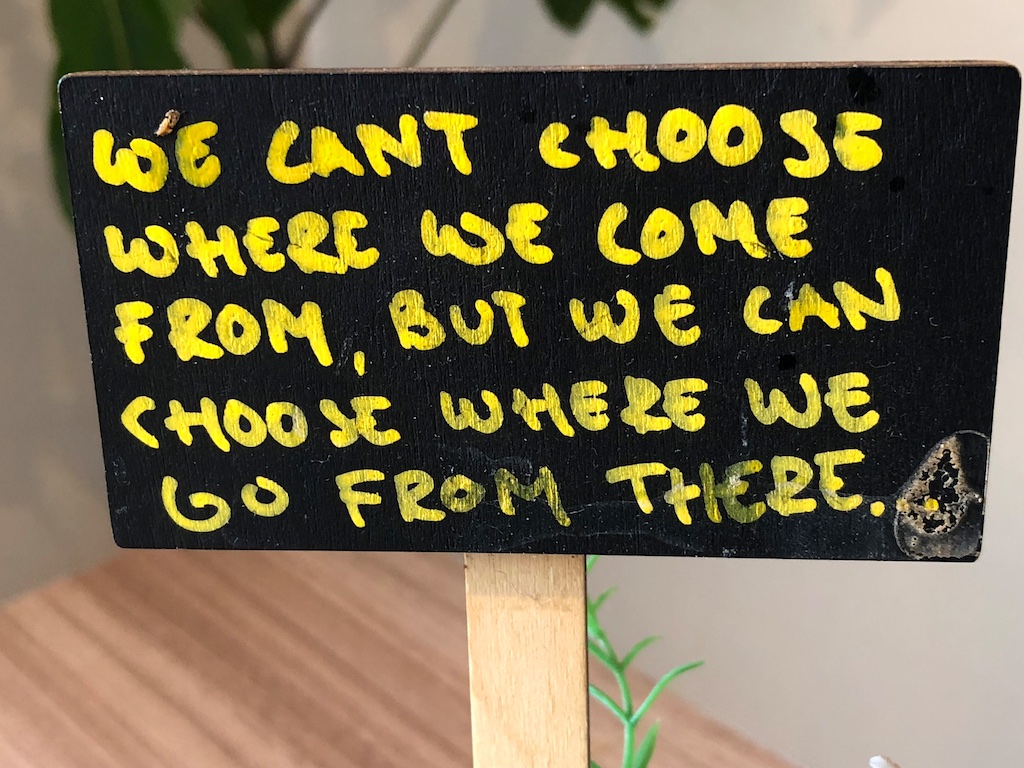 WE CANT CHOOSE
WHERE WE COME
FROM, BUT WE CAN
CHOOSE WHERE WE
GO FROM THERE.